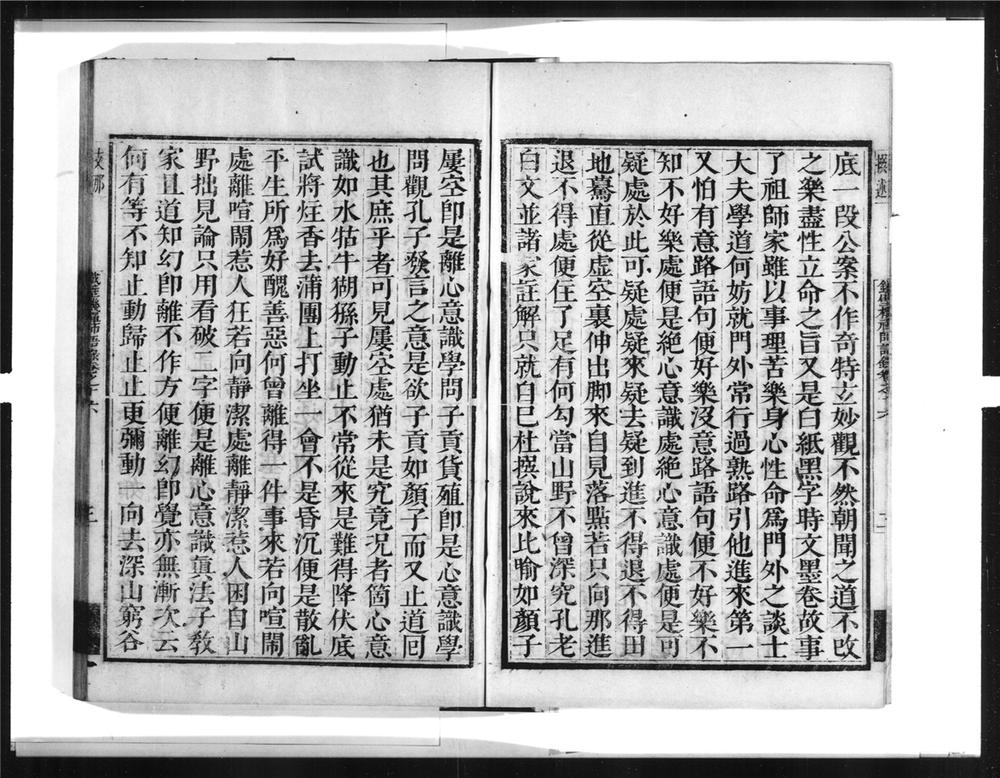 底一段公案不作奇特立妙觀不然朝聞之道不改
之樂盡性立命之旨又是白紙黑字時文墨卷故事
了祖師家雖以事理苦樂身心性命爲門外之談士
大夫學道何妨就門外常行過熟路引他進來第一
又怕有意路語句便好樂沒意路語句便不好樂不
知不好樂處便是絕心意識處絕心意識處便是可
疑處於此可疑處疑來疑去疑到進不得退不得田
地驀直從虛空裏伸出脚來自見落點若只向那進
退不得處便住了足有何勾當山野不曾深究孔老
白文並諸家註解只就自己杜撰說來比喻如顏子
屢空卽是離心意識學問子貢貨殖卽是心意識學
問觀孔子發言之意是欲子貢如顏子而又止道回
也其庶乎者可見屢空處猶未是究竟况者箇心意
識如水牯牛猢猻子動止不常從來是難得降伏底
試將炷香去蒲團上打坐一會不是昏沉便是散亂
平生所爲好醜善惡何曾離得一件事來若向喧鬧
處離喧鬧惹人狂若向靜潔處離靜潔惹人困自山
野拙見論只用看破二字便是離心意識眞法子敎
家且道知幻卽離不作方便離幻卽覺亦無漸次云
何有等不知止動歸止止更彌動一向去深山窮谷